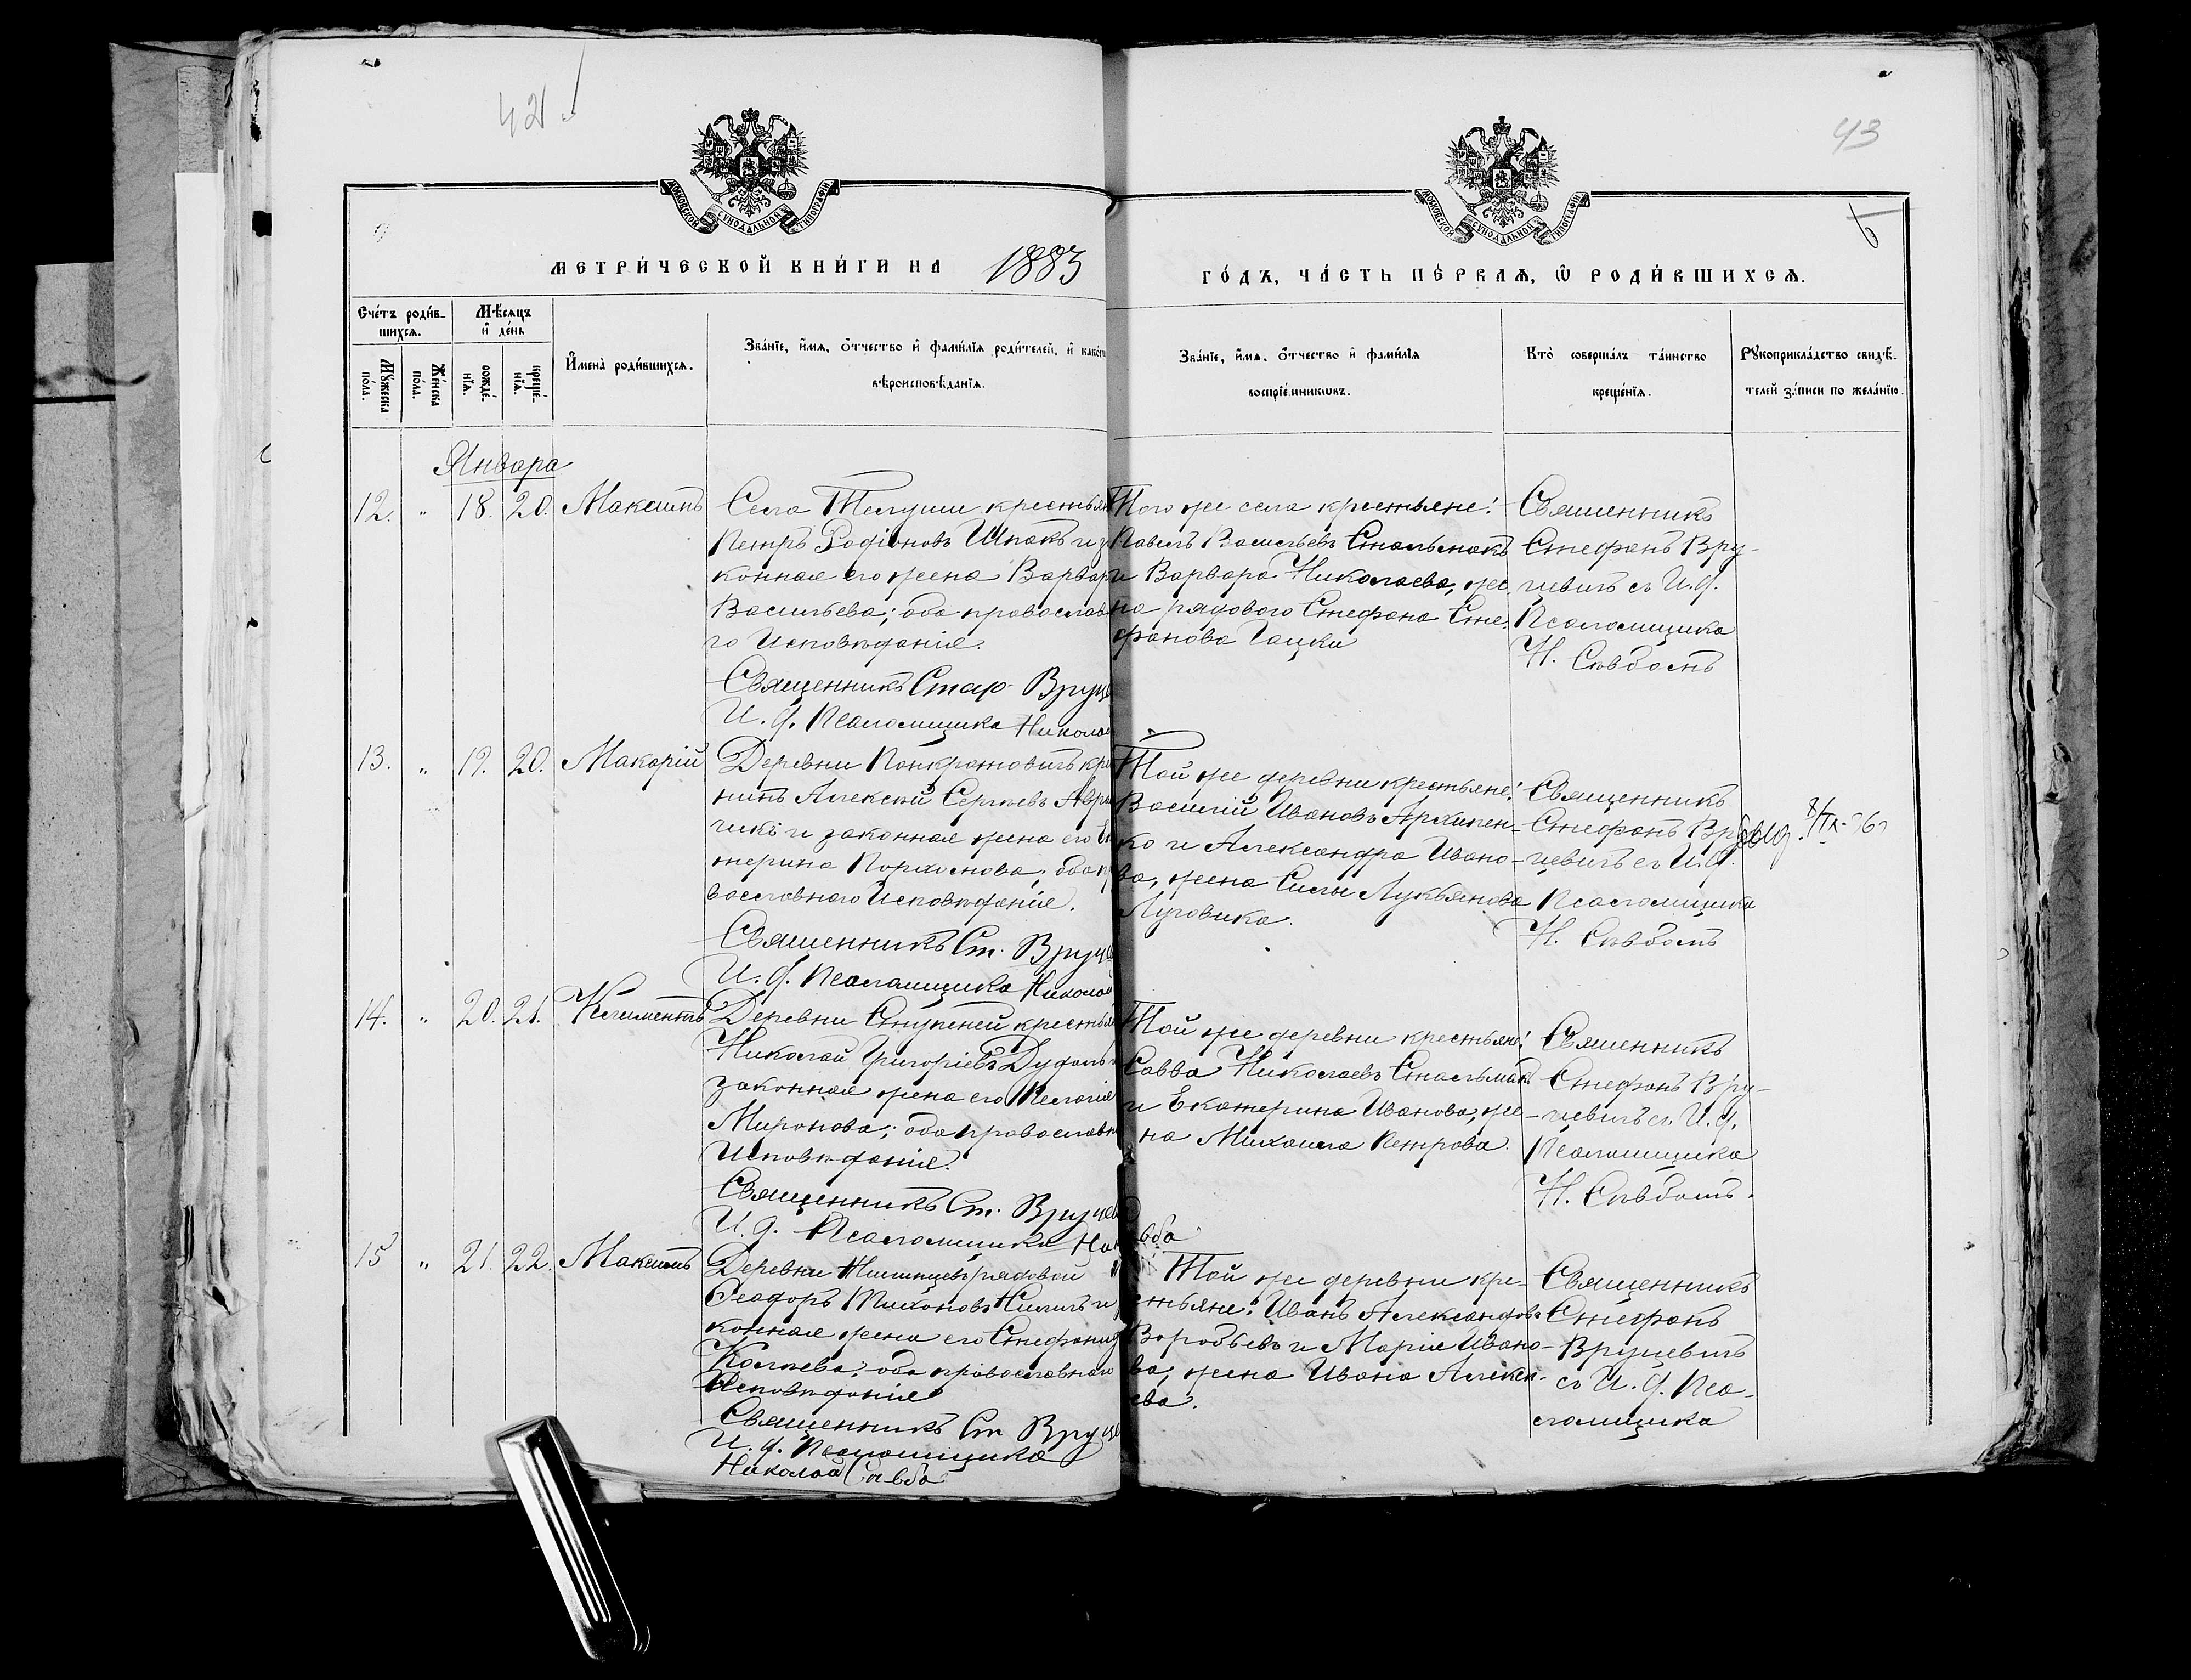 42
43
МОСКОВСКОЙ СѴНОДАЛЬНОЙ ТИПОГРАФІИ
МОСКОВСКОЙ СѴНОДАЛЬНОЙ ТИПОГРАФІИ
МЕТРИ́ЧЕСКОЙ КНИ́ГИ НА 1883
ГО́ДЪ, ЧА́СТЬ ПЕ́РВАѦ, Ѡ РОДИ́ВШИХСѦ.
Сче́тъ роди́в-
шихсѧ.
Мꙋ́жеска по́ла.
Же́нска по́ла.
Мѣ́сѧцъ
и҆ де́нь
рожде́-
нїѧ.
креще́-
нїѧ.
И҆мена̀ роди́вшихсѧ.
Зва́нїе, и҆́мѧ, ѻ҆́тчество и҆ фами́лїѧ роди́телей, и҆ како́гѡ
вѣроисповѣ́данїѧ.
Зва́нїе, и҆́мѧ, ѻ҆́тчество и҆ фами́лїѧ
воспрїе́мникѡвъ.
Кто̀ соверша́лъ та́инство
креще́нїѧ.
Рꙋкоприкла́дство свидѣ́-
телей за́писи по жела́нїю.
Января
12. " 18. 20. Максимъ
Села Телуши крестьян
Петръ Родіоновъ Шпакъ и за
конная его жена Варвара
Васильева; оба православна
го Исповѣданія.
Священникъ Стеф. Вруце
И. д. Псаломщика Никола
Того же села крестьяне:
Павелъ Васильевъ Стальмакъ
и Варвара Николаева, же
на рядового Стефана Сте-
фанова Гацки
Священникъ
Стефанъ Вру-
цевичъ съ И. д.
Псаломщика
Н. Савбомъ
13. " 19. 20. Макарій
Деревни Панкратовичъ кре
нинъ Алексѣй Сергѣевъ
и законная жена его Ека
терина; оба пра
вославнаго Исповѣданія.
Священникъ Ст. Вруце
И. д. Псаломщика Никола
Той же деревни крестьяне:
Василій Ивановъ Архипен-
ко и Александра Ивано-
ва, жена Силы Лукьянова
Луговика.
Священникъ
Стефанъ Вру
цевичъ съ И. д.
Псаломщика
Н. Савбомъ
8/IX-
14. " 20. 21. Климентъ
Деревни Ступеней крестьян
Николай Григоріевъ Дудаль
законная жена его Пелагія
Миронова; оба православн
Исповѣданія.
Священникъ Ст. Вруцев
И. д. Псаломщика Ник
Савба
Той же деревни крестьяне:
Савва Николаевъ Стальмакъ
и Екатерина Иванова, же-
на Михаила Петрова.
Священникъ
Стефанъ Вру-
цевичъ съ И. д.
Псаломщика
Н. Савбомъ.
15 " 21. 22. Максимъ
Деревни рядовой
Ѳеодоръ и
конная жена его Стефанида
оба православнаго
Исповѣданія
Священникъ Ст Вруце
И. д. Псаломщика
Николай Савба
Той же деревни кре-
стьяне: Иванъ Александровъ
Воробьевъ и Марія Ивано-
ва, жена Ивана Алексе-
ева.
Священникъ
Стефанъ
Вруцевичъ
съ И. д. Пса-
ломщика